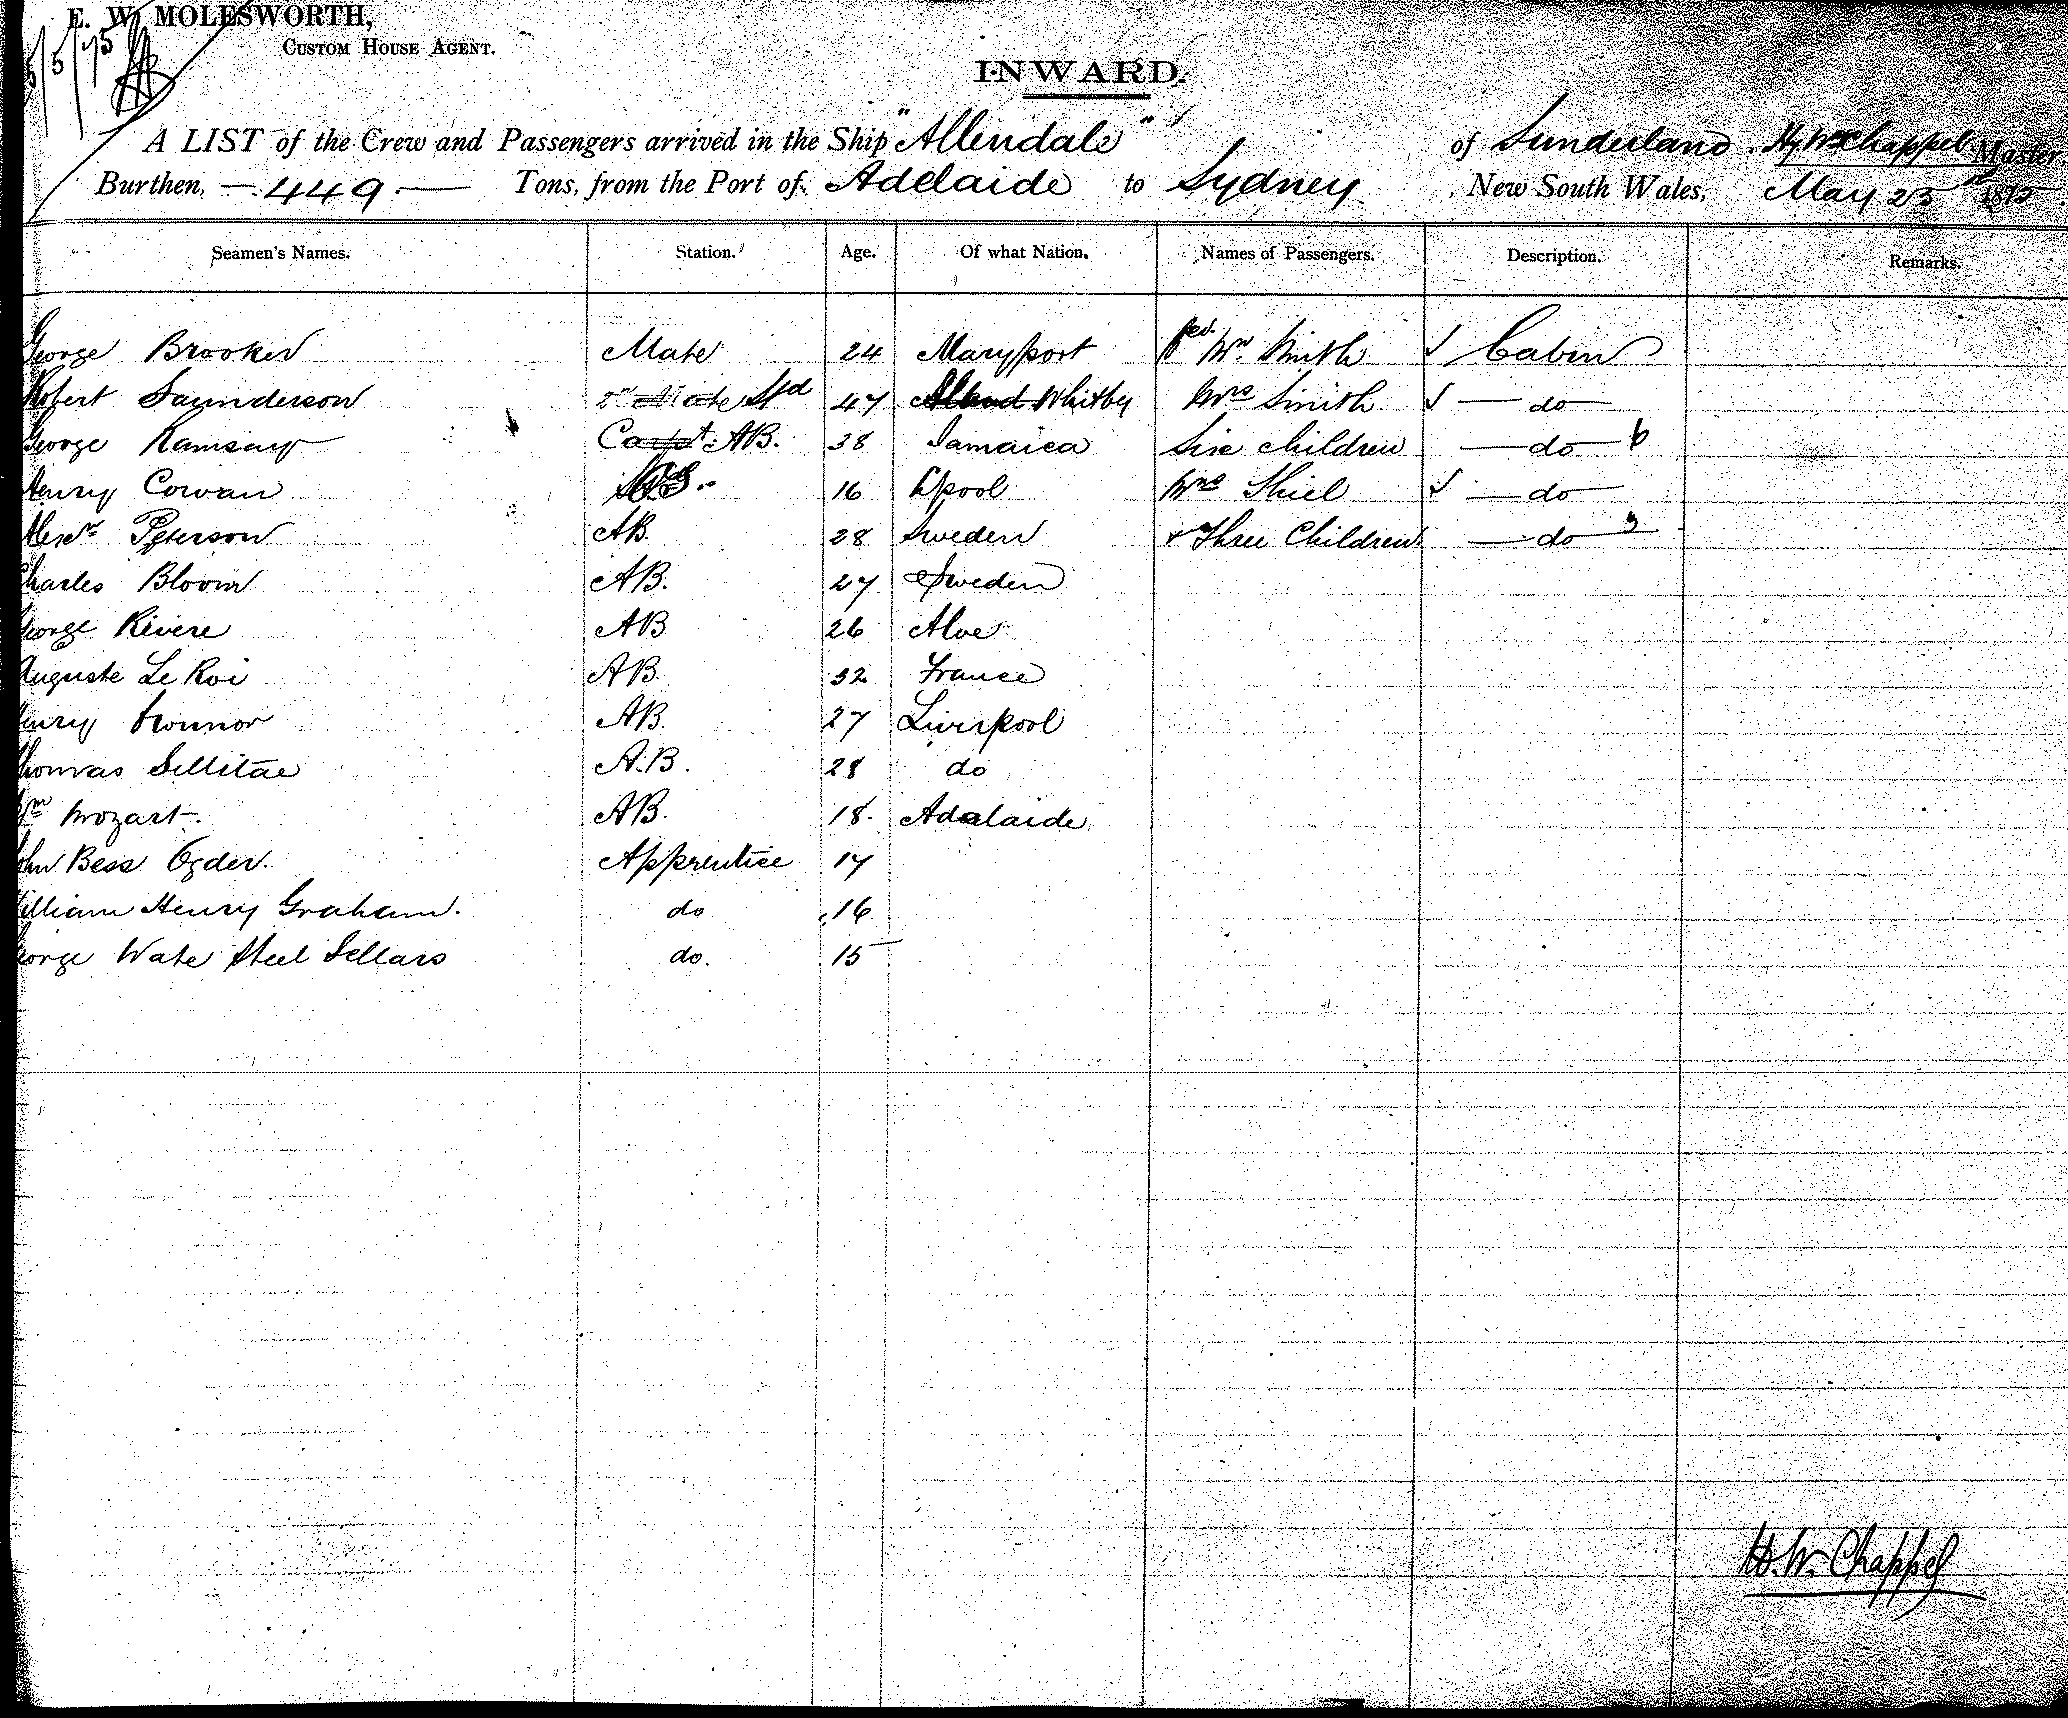 E. W. MOLESWORTH,
CUSTOM HOUSE AGENT.
INWARD.
A LIST of the Crew and Passengers arrived in the Ship "Allendale" of Sunderland, Hy. Wm Chappel Master
Burthen, 449 Tons, from the Port of Adelaide to Sydney New South Wales, May 23rd 1875
Seamen's Names. Station. Age. Of what Nation. Names of Passengers. Description. Remarks.
George Brooker Mate 24 Maryport Mr. Smith Cabin
Robert Saunderson 2nd Mate Std 47 Whitby Mrs Smith do
George Ramsay Carpt. AB. 38 Jamaica Six children do 6
Henry Cowan 16 L'pool Mrs Shiel do
Alexr Peterson AB. 28 Sweden + Three Children do 3
Charles Bloom AB. 27 Sweden
George Rivere AB 26 Aloe
Auguste Le Roi AB. 32 France
Henry AB. 27 Liverpool
Thomas Sellitae A.B. 28 do
Wm Mozart. AB. 18. Adalaide
John Bess Ogder. Apprentice 17
William Henry Graham. do 16
George Wate Steel Sellars do. 15
H. W. Chappel